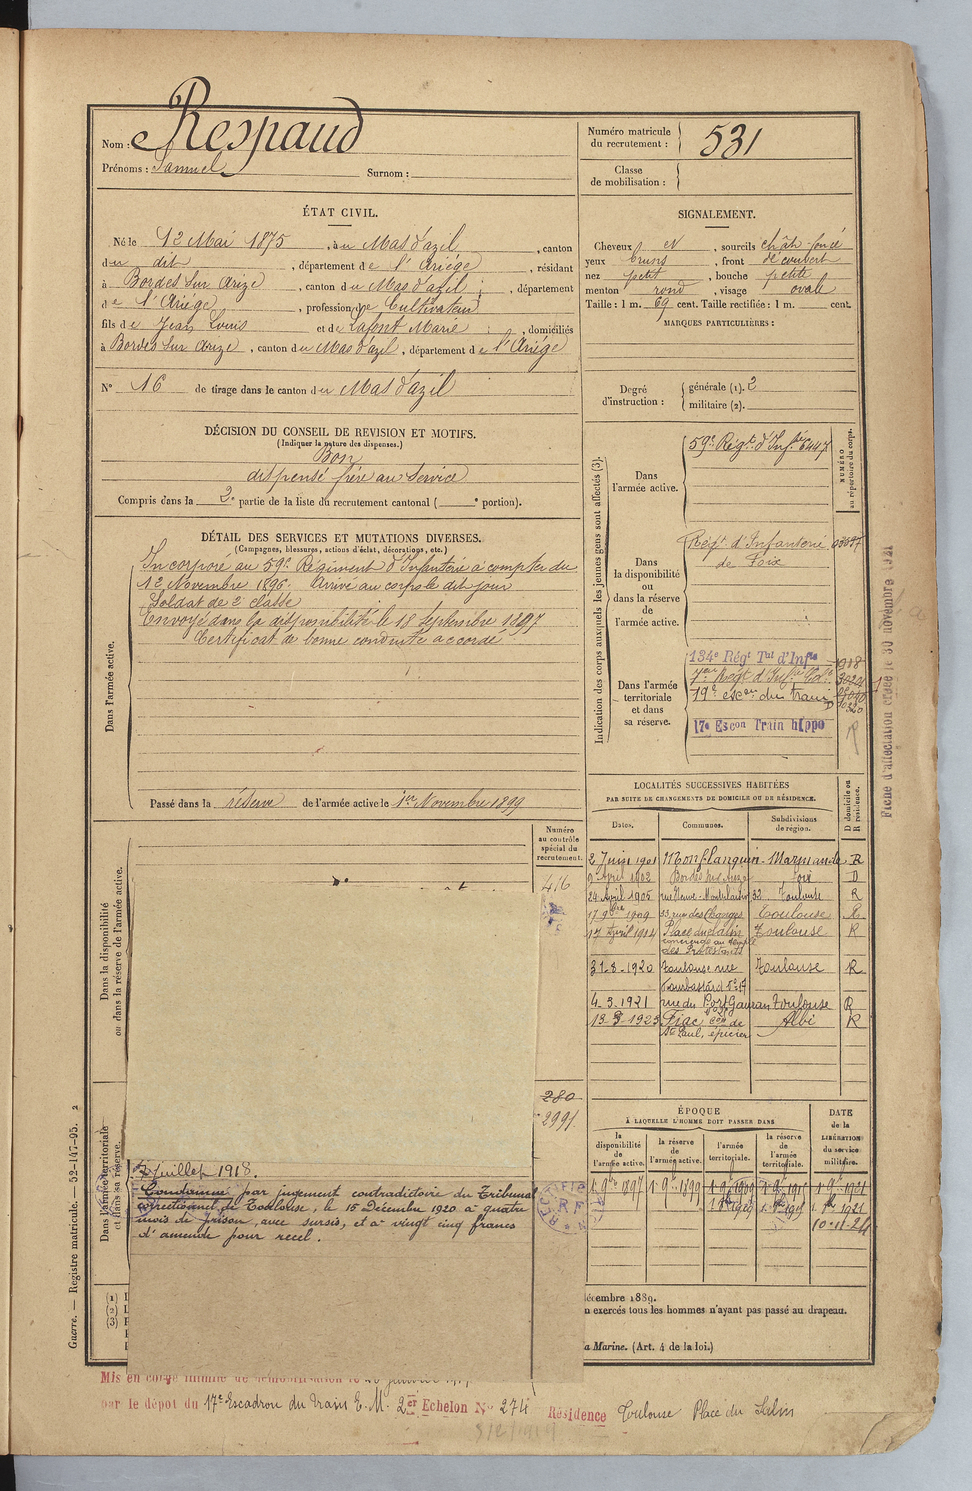 Nom : Respaud
Prénoms : Samuel Surnom :
Numéro matricule du recrutement : 531
Classe de mobilisation :
ÉTAT CIVIL.
Né le 12 Mai 1875, à u Mas d'azil, canton
du dit, département de l'Ariége, résidant
à Bordes sur Arize, canton du Mas d'azil, département
de l'Ariége, profession de Cultivateur
fils de Jean Louis et de Lafont Marie, domiciliés
à Bordes sur Arize, canton du Mas d'azil, département de l'Ariége
N° 16 de tirage dans le canton du Mas d'azil
SIGNALEMENT.
Cheveux et, sourcils chât-foncé
yeux bruns, front découvert
nez petit, bouche petite
menton rond, visage ovale
Taille : 1 m. 69 cent. Taille rectifiée : 1 m. cent.
MARQUES PARTICULIÈRES :
Degré d'instruction : générale (1). 2
militaire (2).
DÉCISION DU CONSEIL DE REVISION ET MOTIFS.
(Indiquer la nature des dispenses.)
Bon
dispensé frère au Service
Compris dans la 2e partie de la liste du recrutement cantonal ( e portion).
DÉTAIL DES SERVICES ET MUTATIONS DIVERSES.
(Campagnes, blessures, actions d'éclat, décorations, etc.)
Dans l'armée active.
Incorporé au 59e Régiment d'Infanterie à compter du
12 Novembre 1896. Arrivé au corps le dit jour
Soldat de 2e classe
Envoyé dans la disponibilité le 18 Septembre 1897
Certificat de bonne conduite accordé
Passé dans la réserve de l'armée active le 1er Novembre 1899
Indication des corps auxquels les jeunes gens sont affectés (3).
NUMÉRO au répertoire du corps.
Dans l'armée active.
59e Régt d'Infrie 6447
Dans la disponibilité ou dans la réserve de l'armée active.
Régt d'Infanterie
de Foix
Dans l'armée territoriale et dans sa réserve.
134e Régt Tal d'Infie 1918
7eme Régt d'Infie Cole
19e escon du train
17e Escon Train hippo
R
Fiche d'affectation créée le 30 novembre 1921
LOCALITÉS SUCCESSIVES HABITÉES
PAR SUITE DE CHANGEMENTS DE DOMICILE OU DE RÉSIDENCE.
Dates. Communes. Subdivisions de région. D domicile ou R résidence.
2 Juin 1901 Monflanquin Marmande R
9 Avril 1902 Bordes sur Arize Foix D
24 Avril 1905 32 Toulouse R
17 9bre 1909 33 rue des Changes Toulouse R
17 Avril 1914 Place du Salin Toulouse R
concierge au temple
des Protestants
31-8-1920 Toulouse rue Toulouse R
4-3-1921 rue du Port Garaud Toulouse R
13-3-1923 Fiac con de Albi R
St Paul, épicier
Numéro au contrôle spécial du recrutement.
416
280
2991
Dans la disponibilité ou dans la réserve de l'armée active.
Dans l'armée territoriale et dans sa réserve.
Juillet 1918.
Condamné par jugement contradictoire du Tribunal
correctionnel de Toulouse, le 15 Décembre 1920 à quatre
mois de prison, avec sursis, et à vingt cinq francs
d'amende pour recel.
R F
ÉPOQUE
À LAQUELLE L'HOMME DOIT PASSER DANS
la disponibilité de l'armée active. la réserve de l'armée active. l'armée territoriale. la réserve de l'armée territoriale. DATE de la LIBÉRATION du service militaire.
1 9bre 1897 1 9bre 1899 1 9bre 1909 1 9bre 1915 1 9bre 1921
10-11-24
(1)
(2)
(3)
décembre 1889.
n exercés tous les hommes n'ayant pas passé au drapeau.
a Marine. (Art. 4 de la loi.)
Guerre. — Registre matricule. — 52-147-95. 2
Mis en congé illimité de démobilisation le
par le dépôt du 17e Escadron du Train E.M. 2er Echelon N° 274 Résidence Toulouse Place du Salin